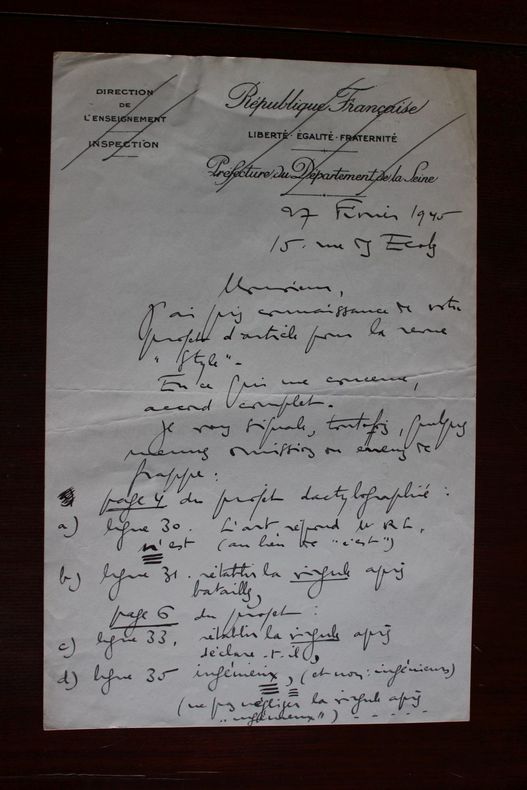 DIRECTION
DE
L'ENSEIGNEMENT
INSPECTION
République Française
LIBERTÉ · ÉGALITÉ · FRATERNITÉ
Préfecture du Département de la Seine
27 Février 1945
15. rue des Ecoles
Monsieur,
J'ai pris connaissance de votre
projet d'article pour la revue
"Style".
En ce qui me concerne,
accord complet.
Je vous signale, toutefois, quelques
menues omissions ou erreurs de
frappe :
page 4 du projet dactylographié :
a) ligne 30. L'art répond
n'est (au lieu de "c'est")
b) ligne 31. rétablir la virgule après
bataille,
page 6 du projet :
c) ligne 33, rétablir la virgule après
déclare-t-il,
d) ligne 35 ingénieux, (et non : ingénieurs)
(ne pas négliger la virgule après
"ingénieux")